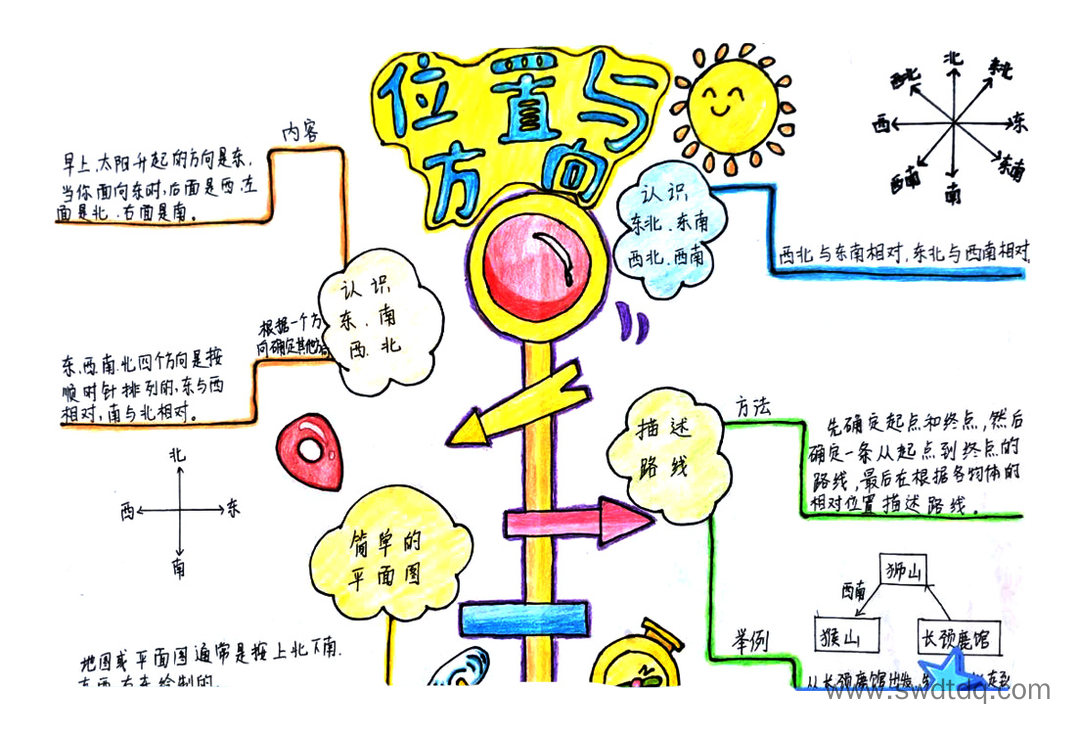 位置与
方向
内容
早上,太阳升起的方向是东,
当你面向东时,后面是西.左
面是北.右面是南。
认识
东、南
西.北
根据一个方
向确定其他方向
东、西、南、北四个方向是按
顺时针排列的,东与西
相对,南与北相对。
北
西
东
南
简单的
平面图
地图或平面图通常是按上北下南.
左西右东绘制的.
北
西北
东北
西
东
西南
东南
南
认识
东北.东南
西北.西南
西北与东南相对,东北与西南相对
描述
路线
方法
先确定起点和终点,然后
确定一条从起点到终点的
路线,最后在根据各物体的
相对位置描述路线。
狮山
西南
猴山
长颈鹿馆
举例
从长颈鹿馆出发,
走到
www.swdtdq.com